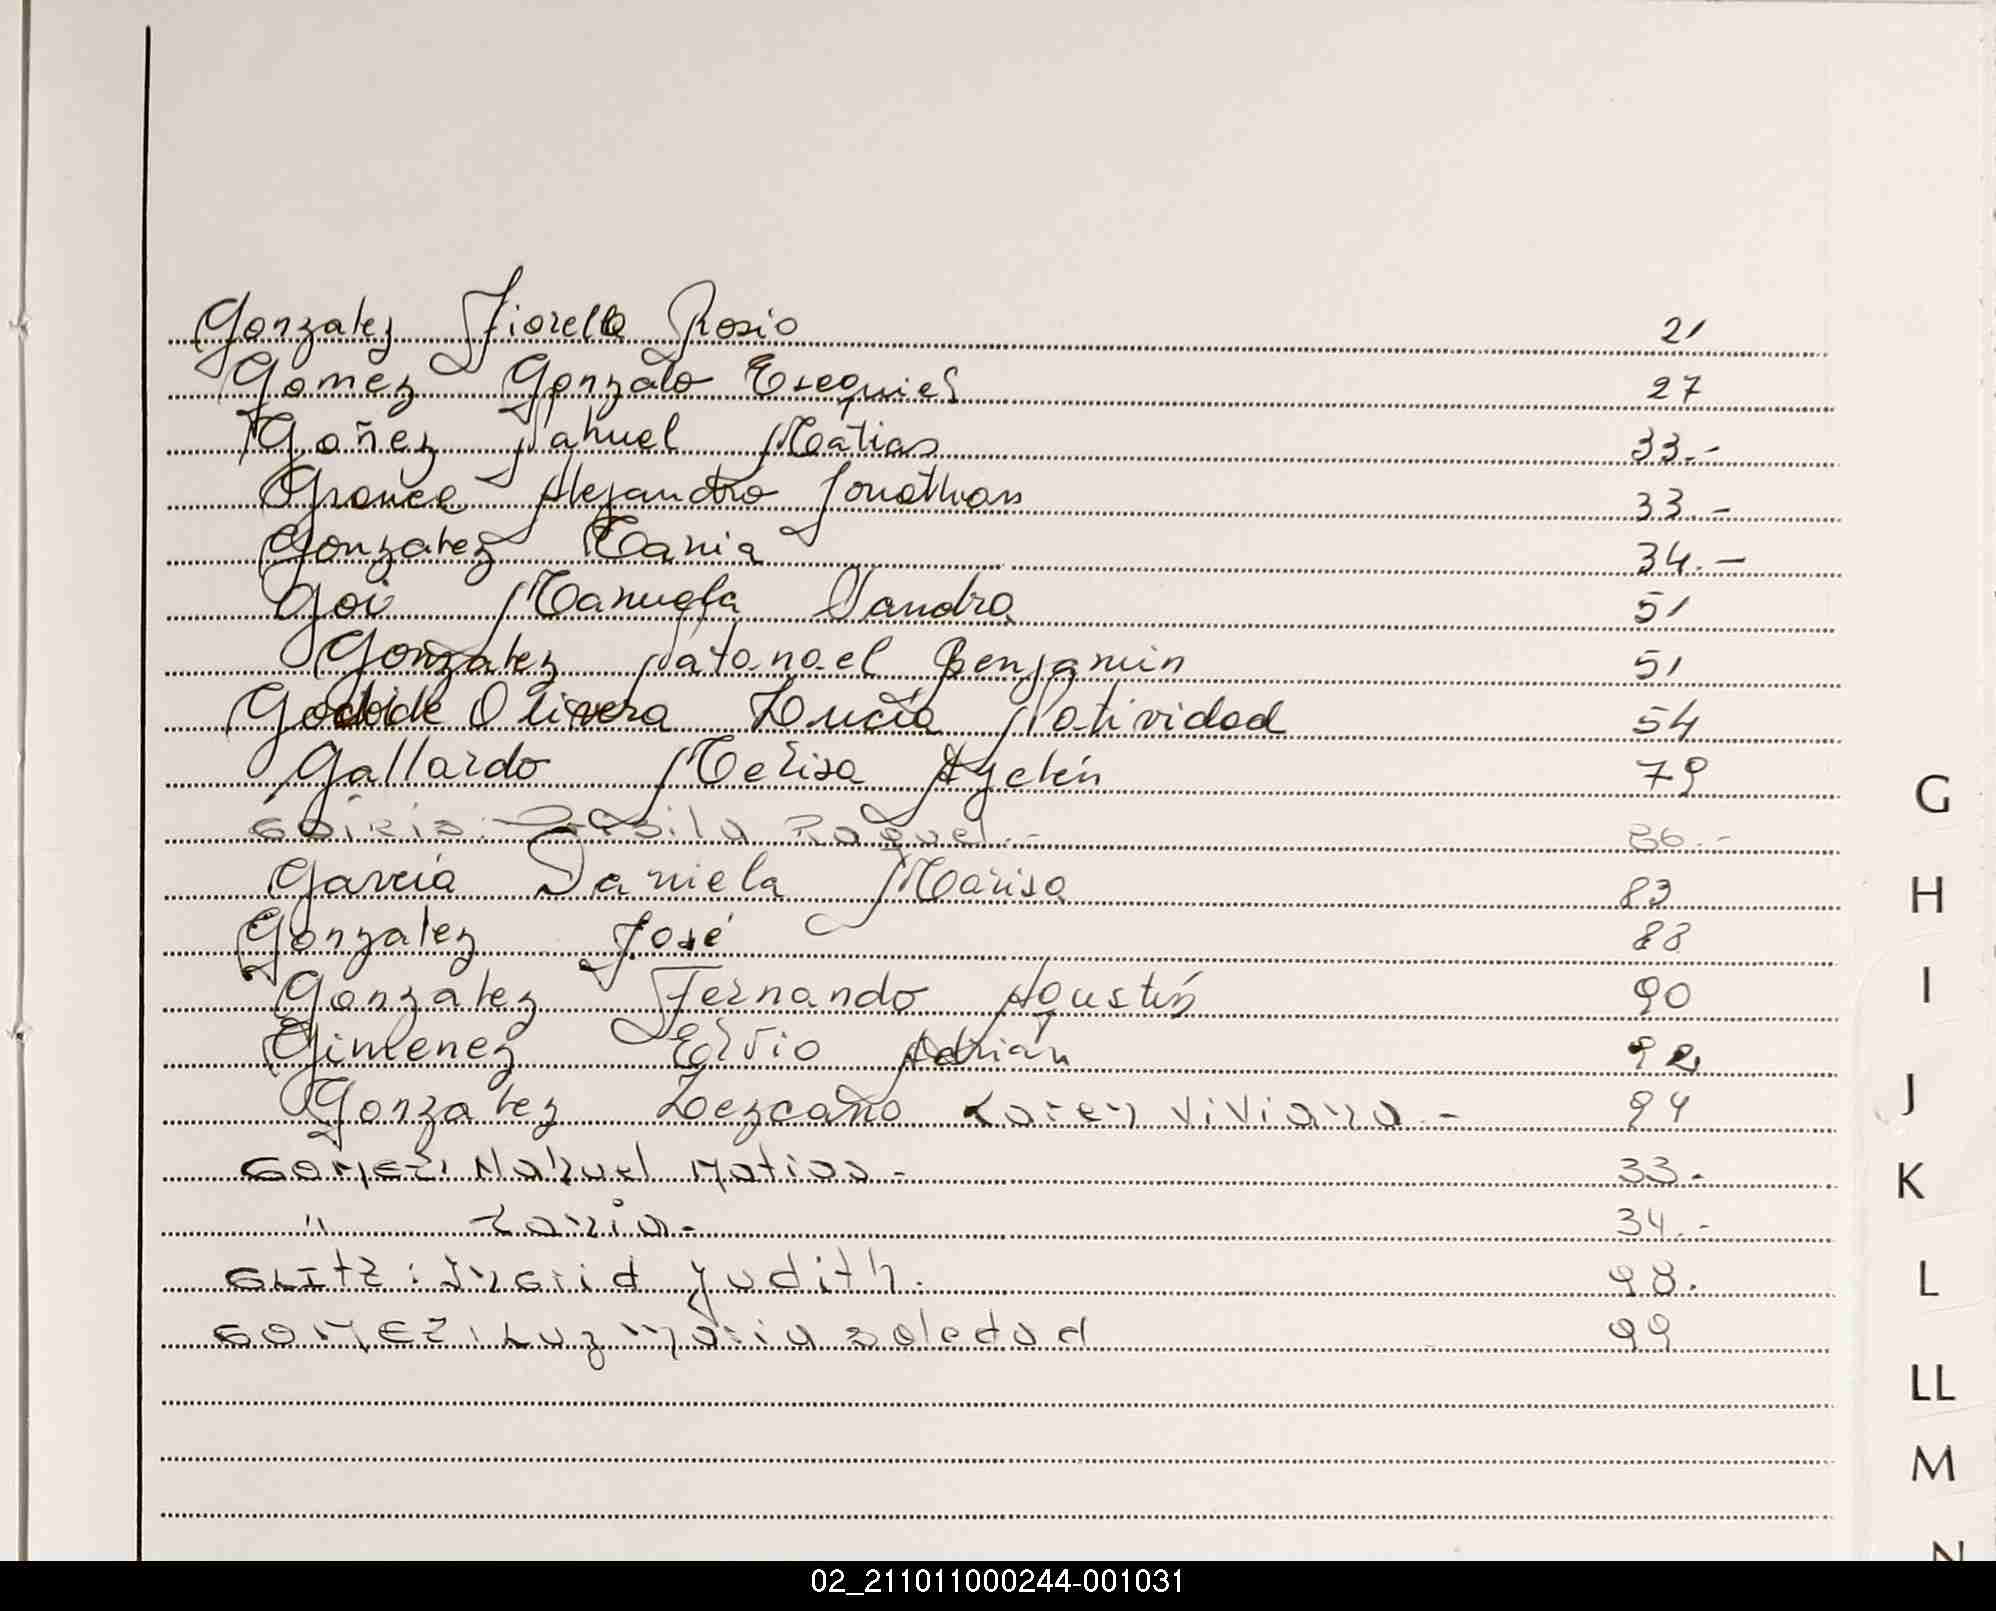 Gonzalez Fiorella Rosio 21
Gomez Gonzalo Esequiel 27
Goñez Nahuel Matias 33.-
Alejandro Jonathan 33.-
Gonzalez Tania 34.-
Goi Manuela Sandra 51
Gonzalez Natanael Benjamin 51
Olivera Lucia Natividad 54
Gallardo Melisa Ayelén 79
Raquel.- 36.-
Garcia Daniela Marisa 83
Gonzalez José 88
Gonzalez Fernando Agustín 90
Gimenez Elvio Adrián 92
Gonzalez Lezcano Karen Viviana.- 94
GOMEZ: Nahuel Matias- 33.
" Tania.- 34.-
GRITZ: Ingrid Judith. 98.
GOMEZ: Luz Maria Soledad 99
G
H
I
J
K
L
LL
M
N
02_211011000244-001031